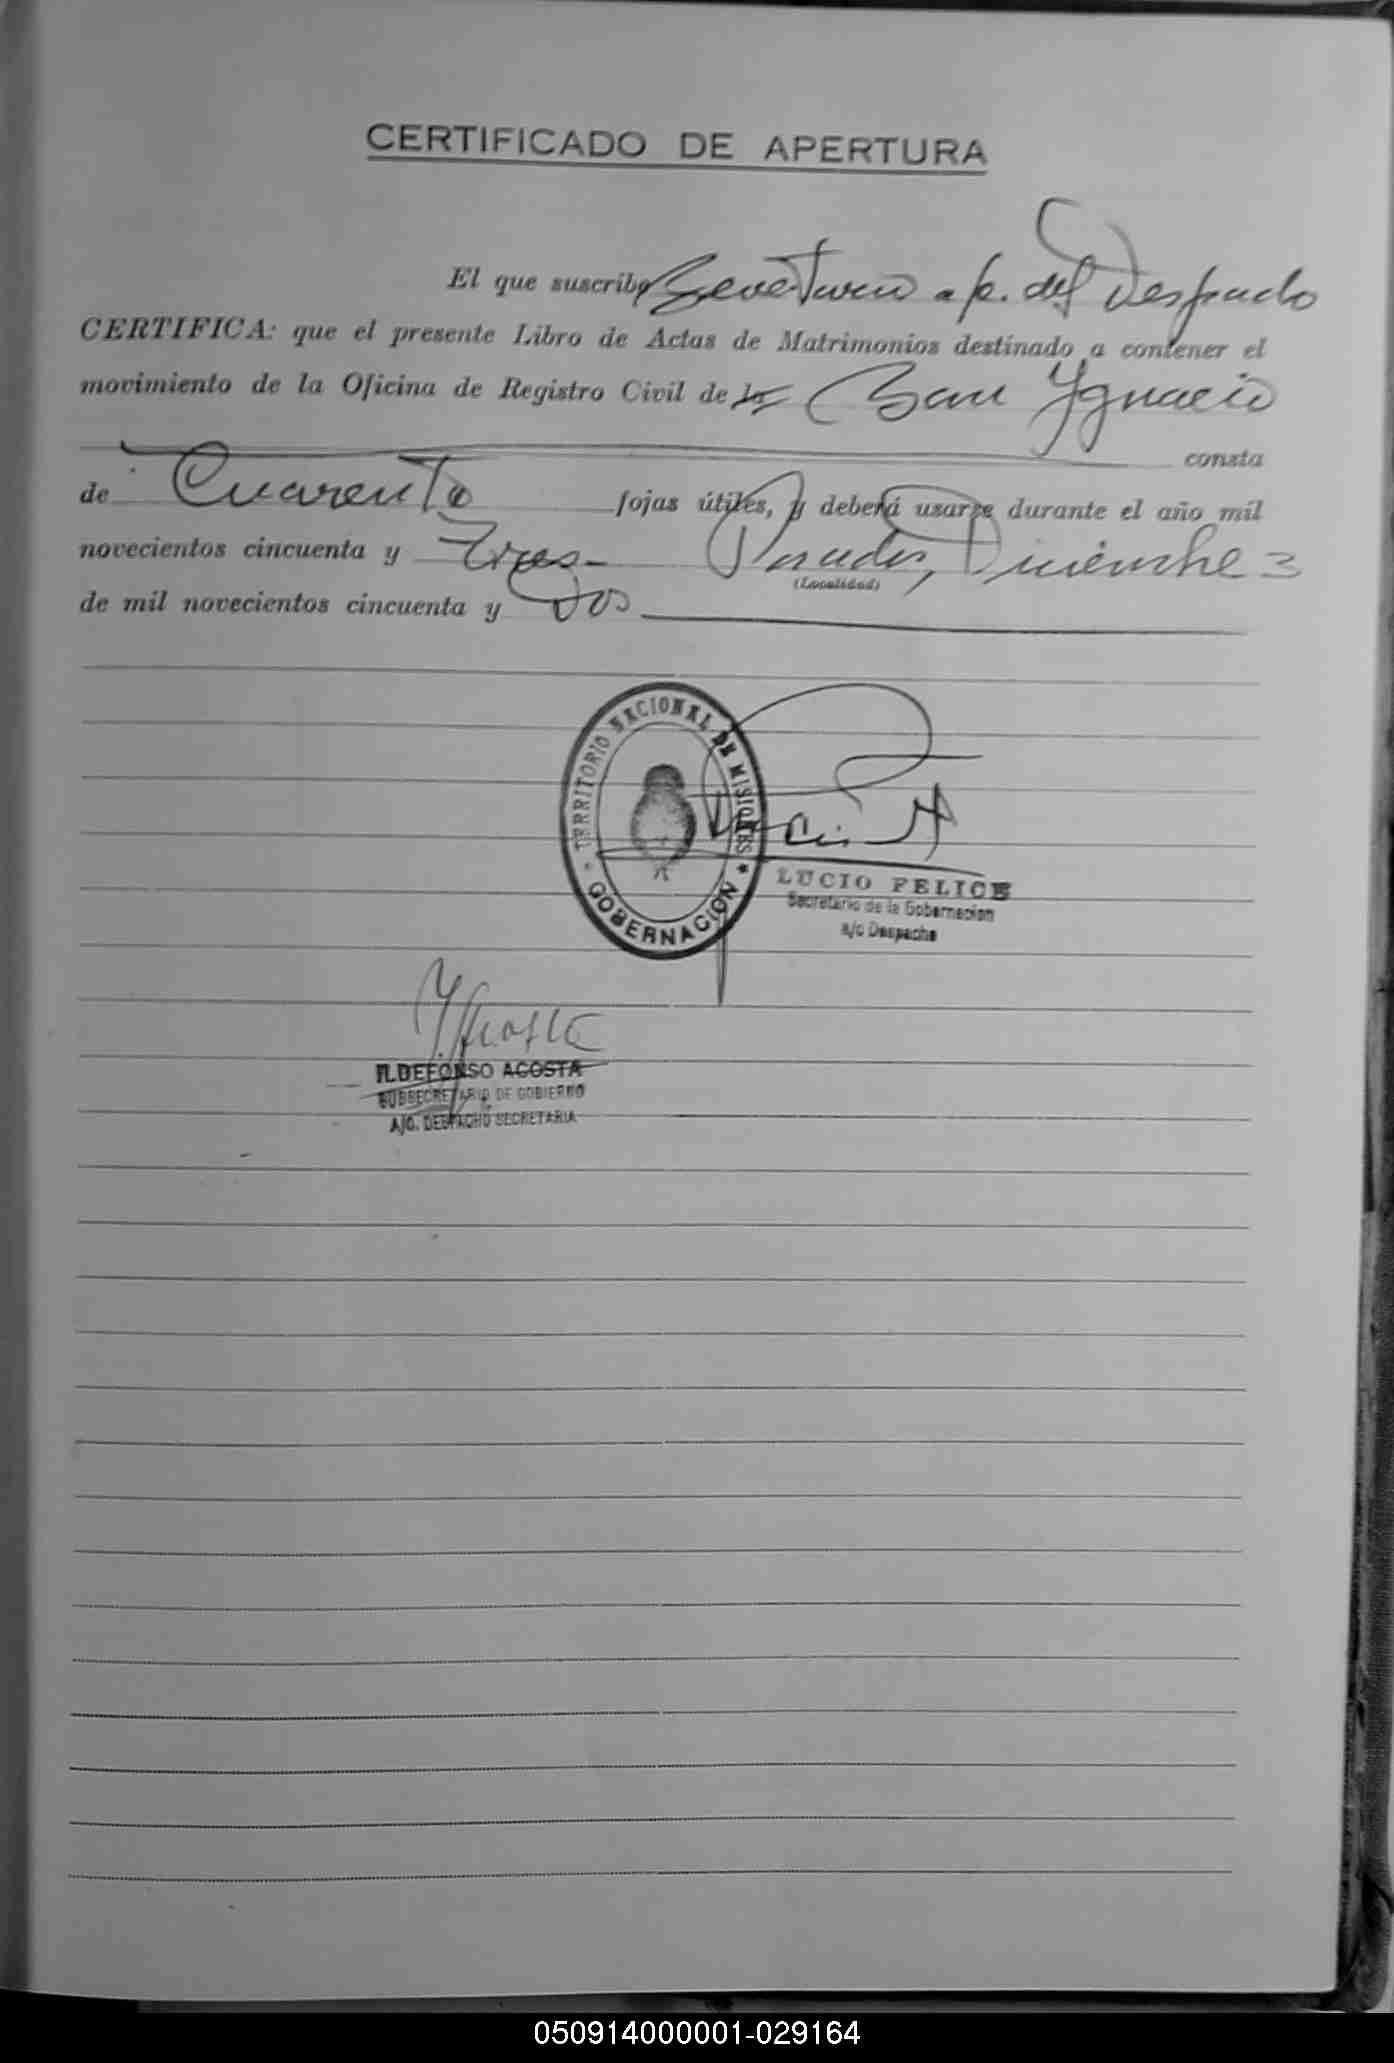 CERTIFICADO DE APERTURA
El que suscribe Secretario a/c. del Despacho
CERTIFICA: que el presente Libro de Actas de Matrimonios destinado a contener el
movimiento de la Oficina de Registro Civil de la San Ygnacio
consta
de Cuarenta fojas útiles, y deberá usarse durante el año mil
novecientos cincuenta y Tres Posadas, Diciembre
(Localidad)
de mil novecientos cincuenta y Dos
TERRITORIO NACIONAL DE MISIONES
GOBERNACION
LUCIO FELICE
Secretario de la Gobernacion
a/c Despacho
ILDEFONSO ACOSTA
SUBSECRETARIO DE GOBIERNO
A/C. DESPACHO SECRETARIA
050914000001-029164